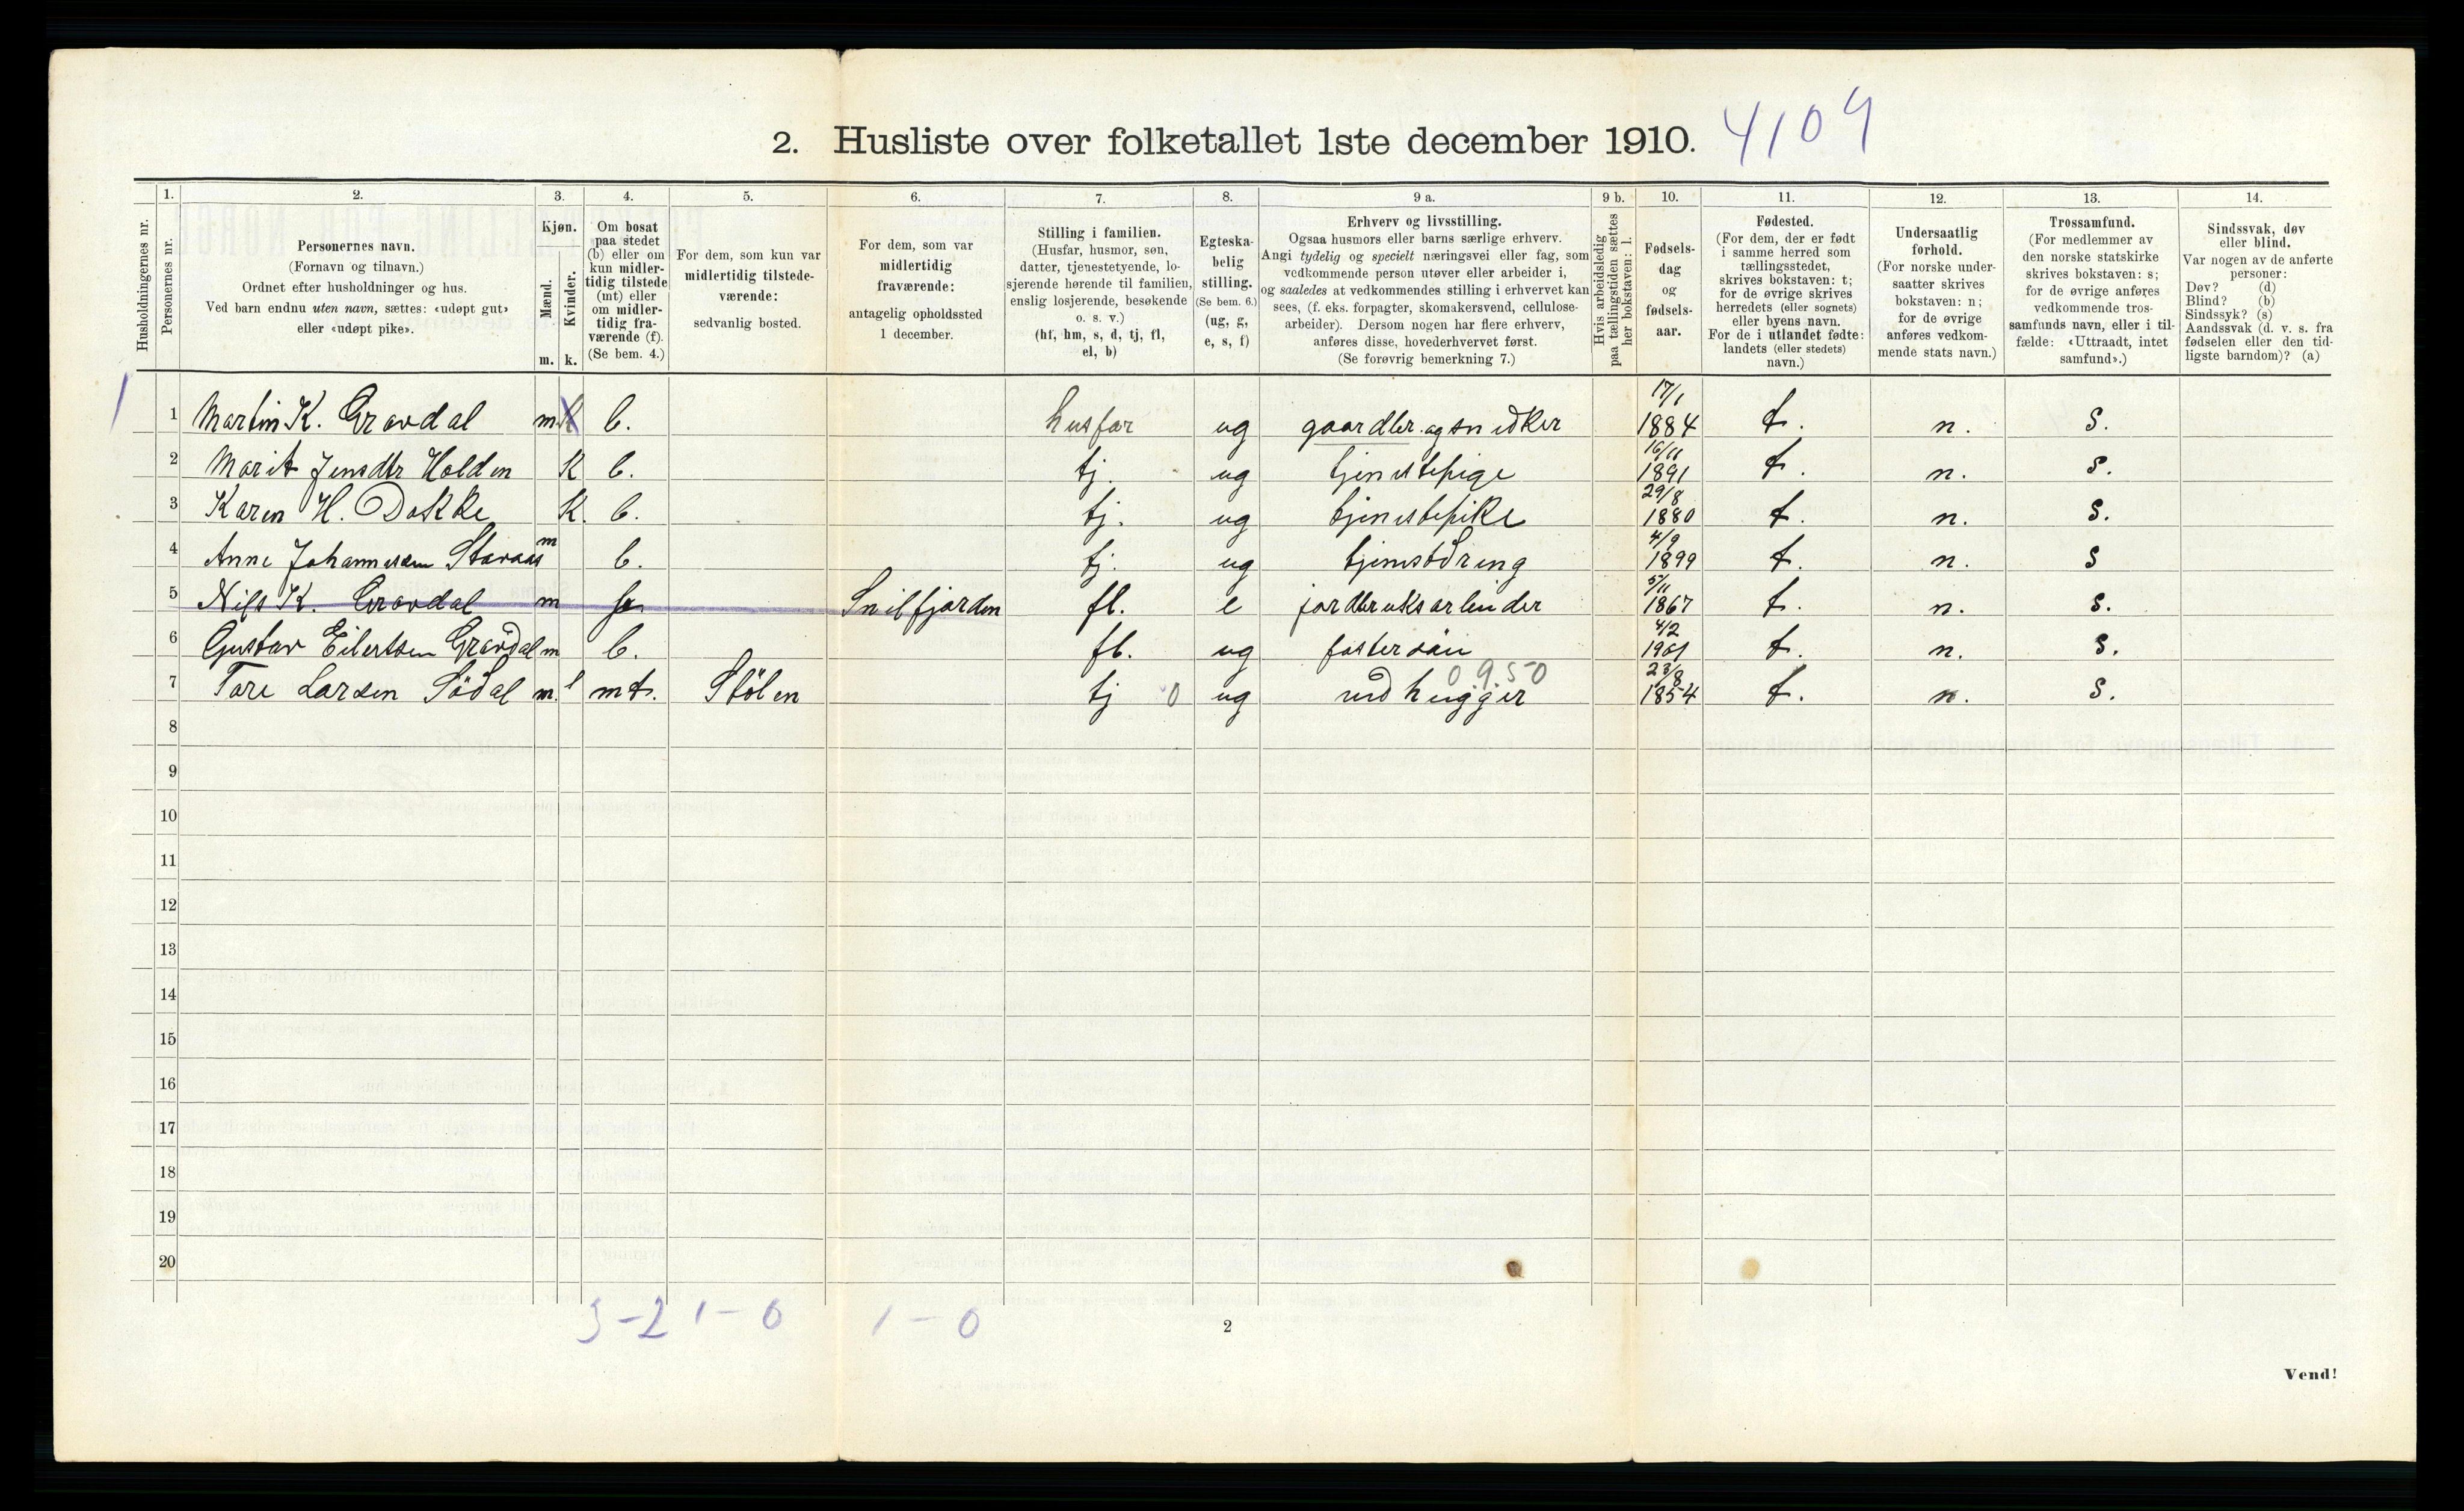 2. Husliste over folketallet 1ste december 1910. 4104
Husholdningernes nr.
1. Personernes nr.
2. Personernes navn. (Fornavn og tilnavn.) Ordnet efter husholdninger og hus. Ved barn endnu uten navn, sættes: «udøpt gut» eller «udøpt pike».
3. Kjøn. Mænd. m. Kvinder. k.
4. Om bosat paa stedet (b) eller om kun midlertidig tilstede (mt) eller om midlertidig fraværende (f). (Se bem. 4.)
5. For dem, som kun var midlertidig tilstedeværende: sedvanlig bosted.
6. For dem, som var midlertidig fraværende: antagelig opholdssted 1 december.
7. Stilling i familien. (Husfar, husmor, søn, datter, tjenestetyende, losjerende hørende til familien, enslig losjerende, besøkende o. s. v.) (hf, hm, s, d, tj, fl, el, b)
8. Egteskabelig stilling. (Se bem. 6.) (ug, g, e, s, f)
9 a. Erhverv og livsstilling. Ogsaa husmors eller barns særlige erhverv. Angi tydelig og specielt næringsvei eller fag, som vedkommende person utøver eller arbeider i, og saaledes at vedkommendes stilling i erhvervet kan sees, (f. eks. forpagter, skomakersvend, cellulosearbeider). Dersom nogen har flere erhverv, anføres disse, hovederhvervet først. (Se forøvrig bemerkning 7.)
9 b. Hvis arbeidsledig paa tællingstiden sættes her bokstaven: l.
10. Fødselsdag og fødselsaar.
11. Fødested. (For dem, der er født i samme herred som tællingsstedet, skrives bokstaven: t; for de øvrige skrives herredets (eller sognets) eller byens navn. For de i utlandet fødte: landets (eller stedets) navn.)
12. Undersaatlig forhold. (For norske undersaatter skrives bokstaven: n; for de øvrige anføres vedkommende stats navn.)
13. Trossamfund. (For medlemmer av den norske statskirke skrives bokstaven: s; for de øvrige anføres vedkommende trossamfunds navn, eller i tilfælde: «Uttraadt, intet samfund».)
14. Sindssvak, døv eller blind. Var nogen av de anførte personer: Døv? (d) Blind? (b) Sindssyk? (s) Aandssvak (d. v. s. fra fødselen eller den tidligste barndom)? (a)
1 1 Martin K. Gravdal m k b. husfar ug gaardbr. og snedker 17/1 1884 t. n. s.
2 Marit Jensdtr Holden K b. tj. ug tjenestepige 16/11 1891 t. n. s.
3 Karen H. Dokke K. b. tj. ug tjenestepike 29/8 1880 t. n. s.
4 Anne Johannesen Stavaas m b. tj. ug tjenestdreng 4/9 1899 t. n. s
5 Nils K. Gravdal m f Snilfjorden fl. e jordbruksarbeider 5/11 1867 t. n. s.
6 Gustav Eilertsen Gravdal m b. fl. ug fostersøn 4/2 1901 t. n. s.
7 Tore Larsen Södal m. mt. Stölen tj 0 ug vedhugger 0950 23/8 1854 t. n. s.
8
9
10
11
12
13
14
15
16
17
18
19
20
3-2 1-0 1-0
2
Vend!